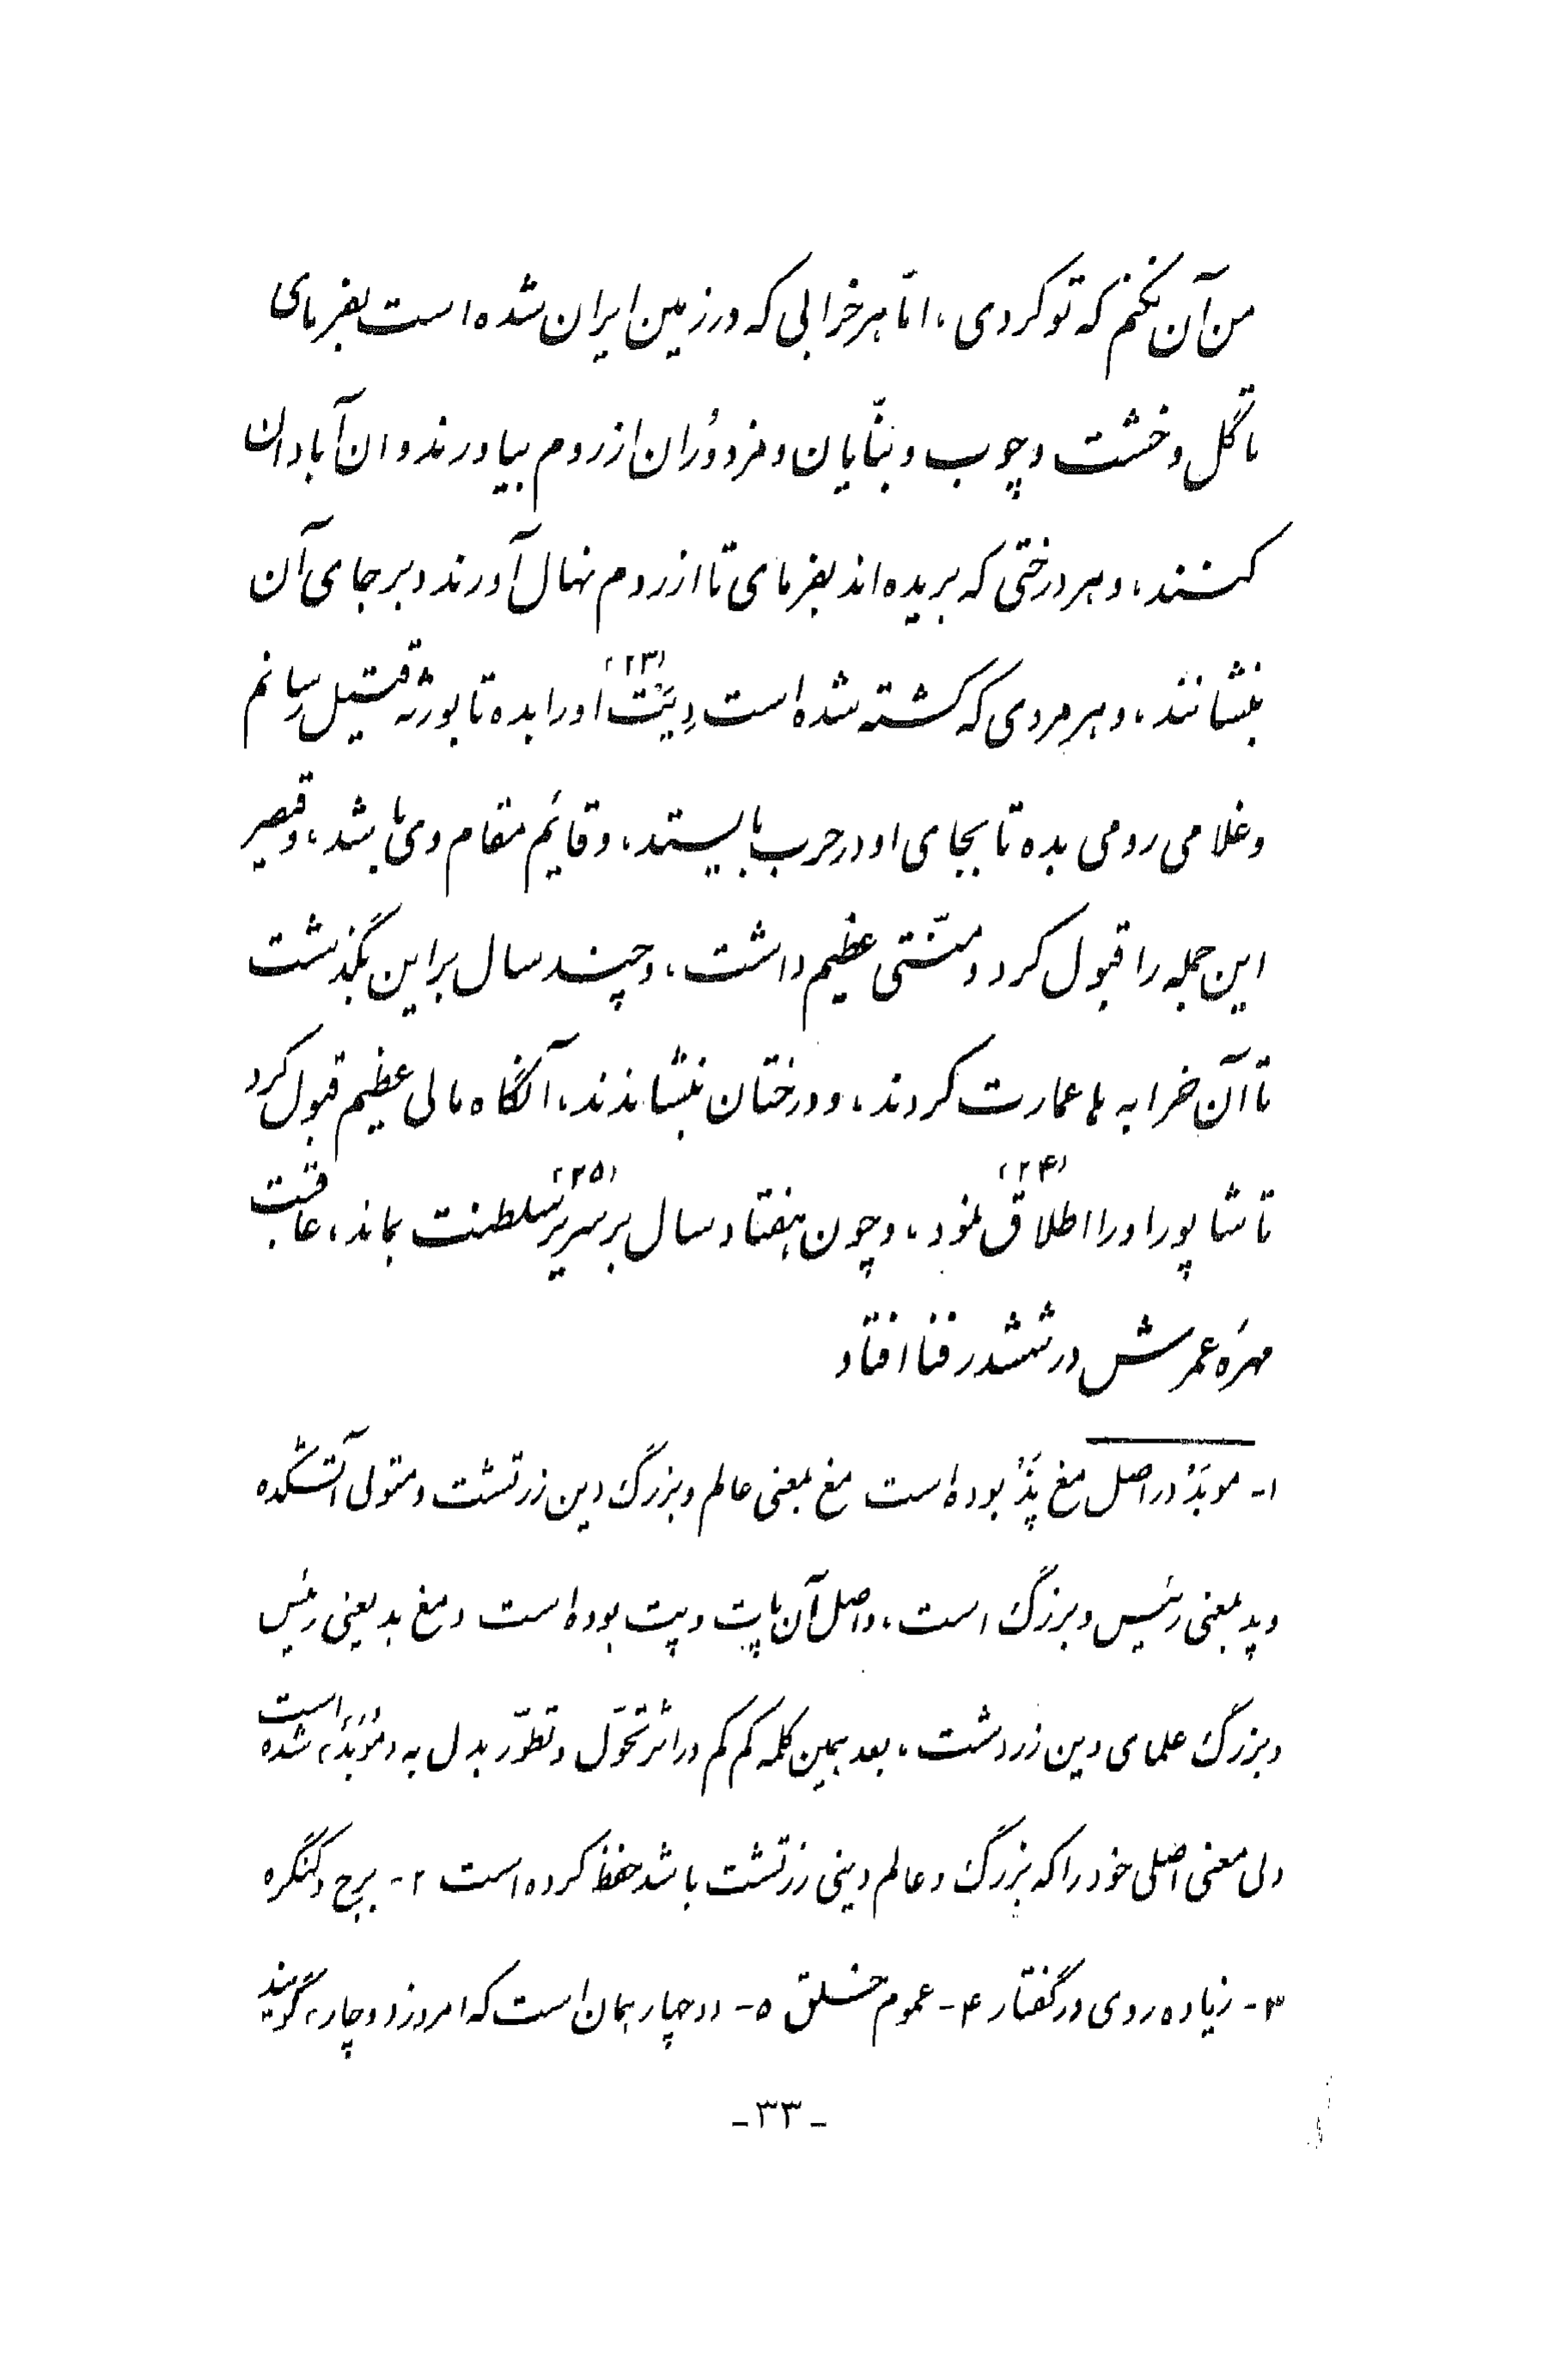 من آن نکنم که تو کردی، امّا هر خرابی که در زمین ایران شده است بفرمای
تا گل و خشت و چوب و بنّایان و مزدوُران از روم بیاورند و ان آبادان
کنند، و هر درختی که بریده‌اند بفرمای تا از روم نهال آورند و بر جای آن
بنشانند، و هر مردی که کشته شده است دِیَت (۲۳) او را بده تا بورثه قتیل رسانم
و غلامی رومی بده تا بجای او در حرب بایستد، و قائم مقام وی باشد، و قیصر
این جمله را قبول کرد و منّتی عظیم داشت، و چند سال بر این بگذشت
تا آن خرابه ها عمارت کردند، و درختان بنشاندند، آنگاه مالی عظیم قبول کرد
تا شاپور او را اطلاق (۲۴) نمود، و چون هفتاد سال بر سریر (۲۵) سلطنت بماند، عاقبت
مهرهٔ عمرش در ششدر فنا افتاد
۱- موبَدْ در اصل مغ پَدْ بوده است مغ بمعنی عالم و بزرگ دین زرتشت و متولی آتشکده
و پد بمعنی رئیس و بزرگ است، و اصل آن پات و پت بوده است و مغ بد یعنی رئیس
و بزرگ علمای دین زردشت، بعد همین کلمه کم کم در اثر تحوّل و تطوّر بدل به «مُوْبَدْ» شده است
ولی معنی اصلی خود را که بزرگ و عالم دینی زرتشت باشد حفظ کرده است ۲- برج و کنگره
۳- زیاده روی در گفتار ۴- عموم خلق ۵- دو چهار همان است که امروز «دوچار» گویند
-۳۳-